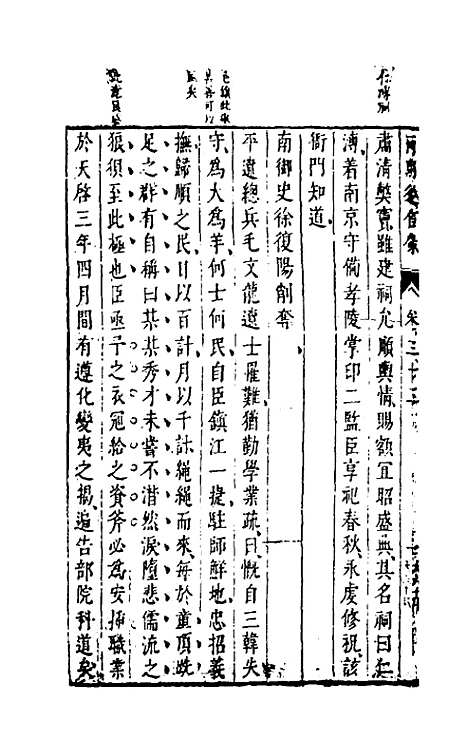 兩朝從信錄 卷三十三
肅清獘竇雖建祠允順輿情賜額宜昭盛典其名祠曰仁
溥着南京守備孝陵掌印二監臣享祀春秋永虔修祝該
衙門知道
南御史徐復陽削奪
平遼總兵毛文龍遼士罹難猶勤學業疏曰慨自三韓失
守爲犬爲羊何士何民自臣鎮江一捷駐師鮮地忠招義
撫歸順之民日以百計月以千計繩繩而來每於童頂跣
足之群有自稱曰某某秀才未嘗不潸然淚墮悲儒流之
狼狽至此極也臣亟予之衣冠給之資斧必爲安插職業
於天啓三年四月間有遵化變夷之揭遍告部院科道矣